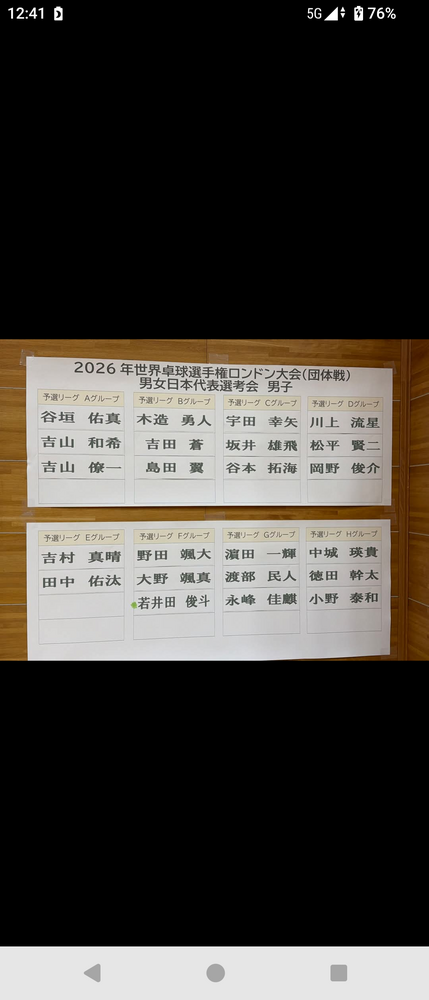 12:41
5G
76%
2026 年世界卓球選手権ロンドン大会(団体戦)
男女日本代表選考会 男子
予選リーグ Aグループ
谷垣 佑真
吉山 和希
吉山 僚一
予選リーグ Bグループ
木造 勇人
吉田 蒼
島田 翼
予選リーグ Cグループ
宇田 幸矢
坂井 雄飛
谷本 拓海
予選リーグ Dグループ
川上 流星
松平 賢二
岡野 俊介
予選リーグ Eグループ
吉村 真晴
田中 佑汰
予選リーグ Fグループ
野田 颯太
大野 颯真
若井田 俊斗
予選リーグ Gグループ
濵田 一輝
渡部 民人
永峰 佳麒
予選リーグ Hグループ
中城 瑛貴
徳田 幹太
小野 泰和